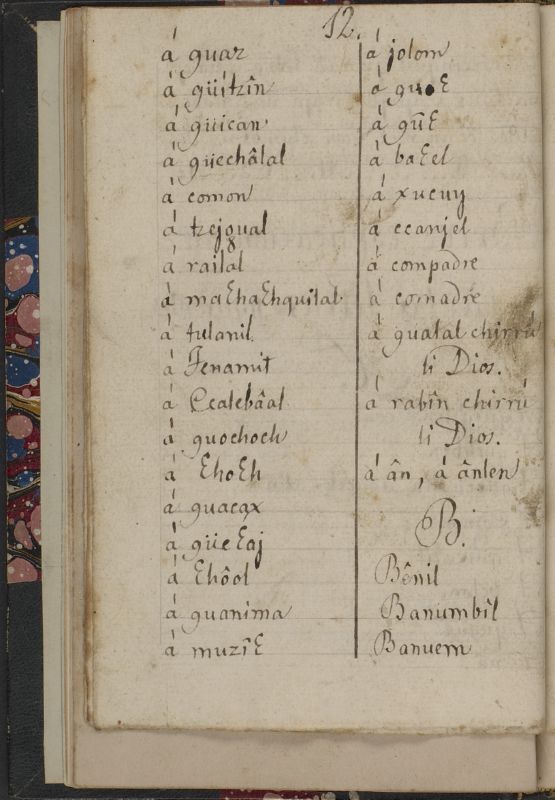 12.
á guar
á güitzîn
á güican
á güechâlal
á comon
á tzejqual
á railal
á maꜪhaꜪhquilal
á tulanil
á Tenamit
á Ccatebâal
á guochoch
á ꜪhoꜪh
á guacax
á güeꜪaj
á Ꜫhôol
á guanima
á muzîꜪ
á jolom
á guꜪ
á gûꜪ
á baꜪel
á xucuy
á ccanjel
á compadre
á comadre
á gualal chirrú
li Dios.
á rabîn chirrú
li Dios.
á ân, á ânlen
B.
Bênil
Banumbil
Banuem